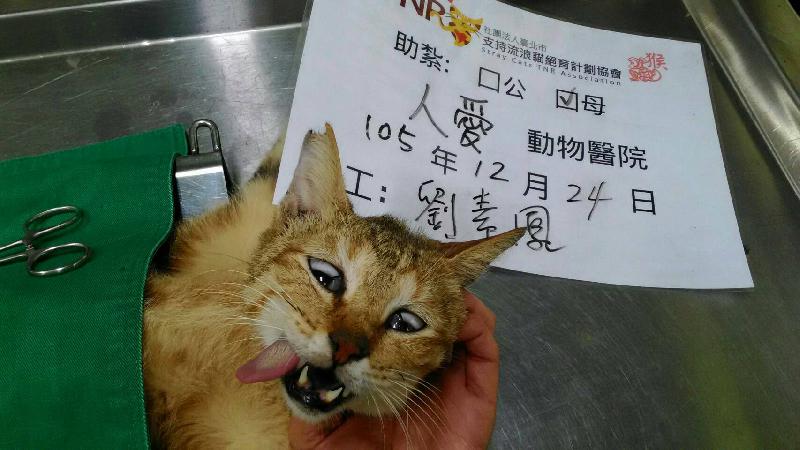 NR
社團法人臺北市
支持流浪貓絕育計劃協會
Stray Cats TNR Association
助紮: □公 ☑母
人愛 動物醫院
105年12月24日
工: 劉素鳳
猴